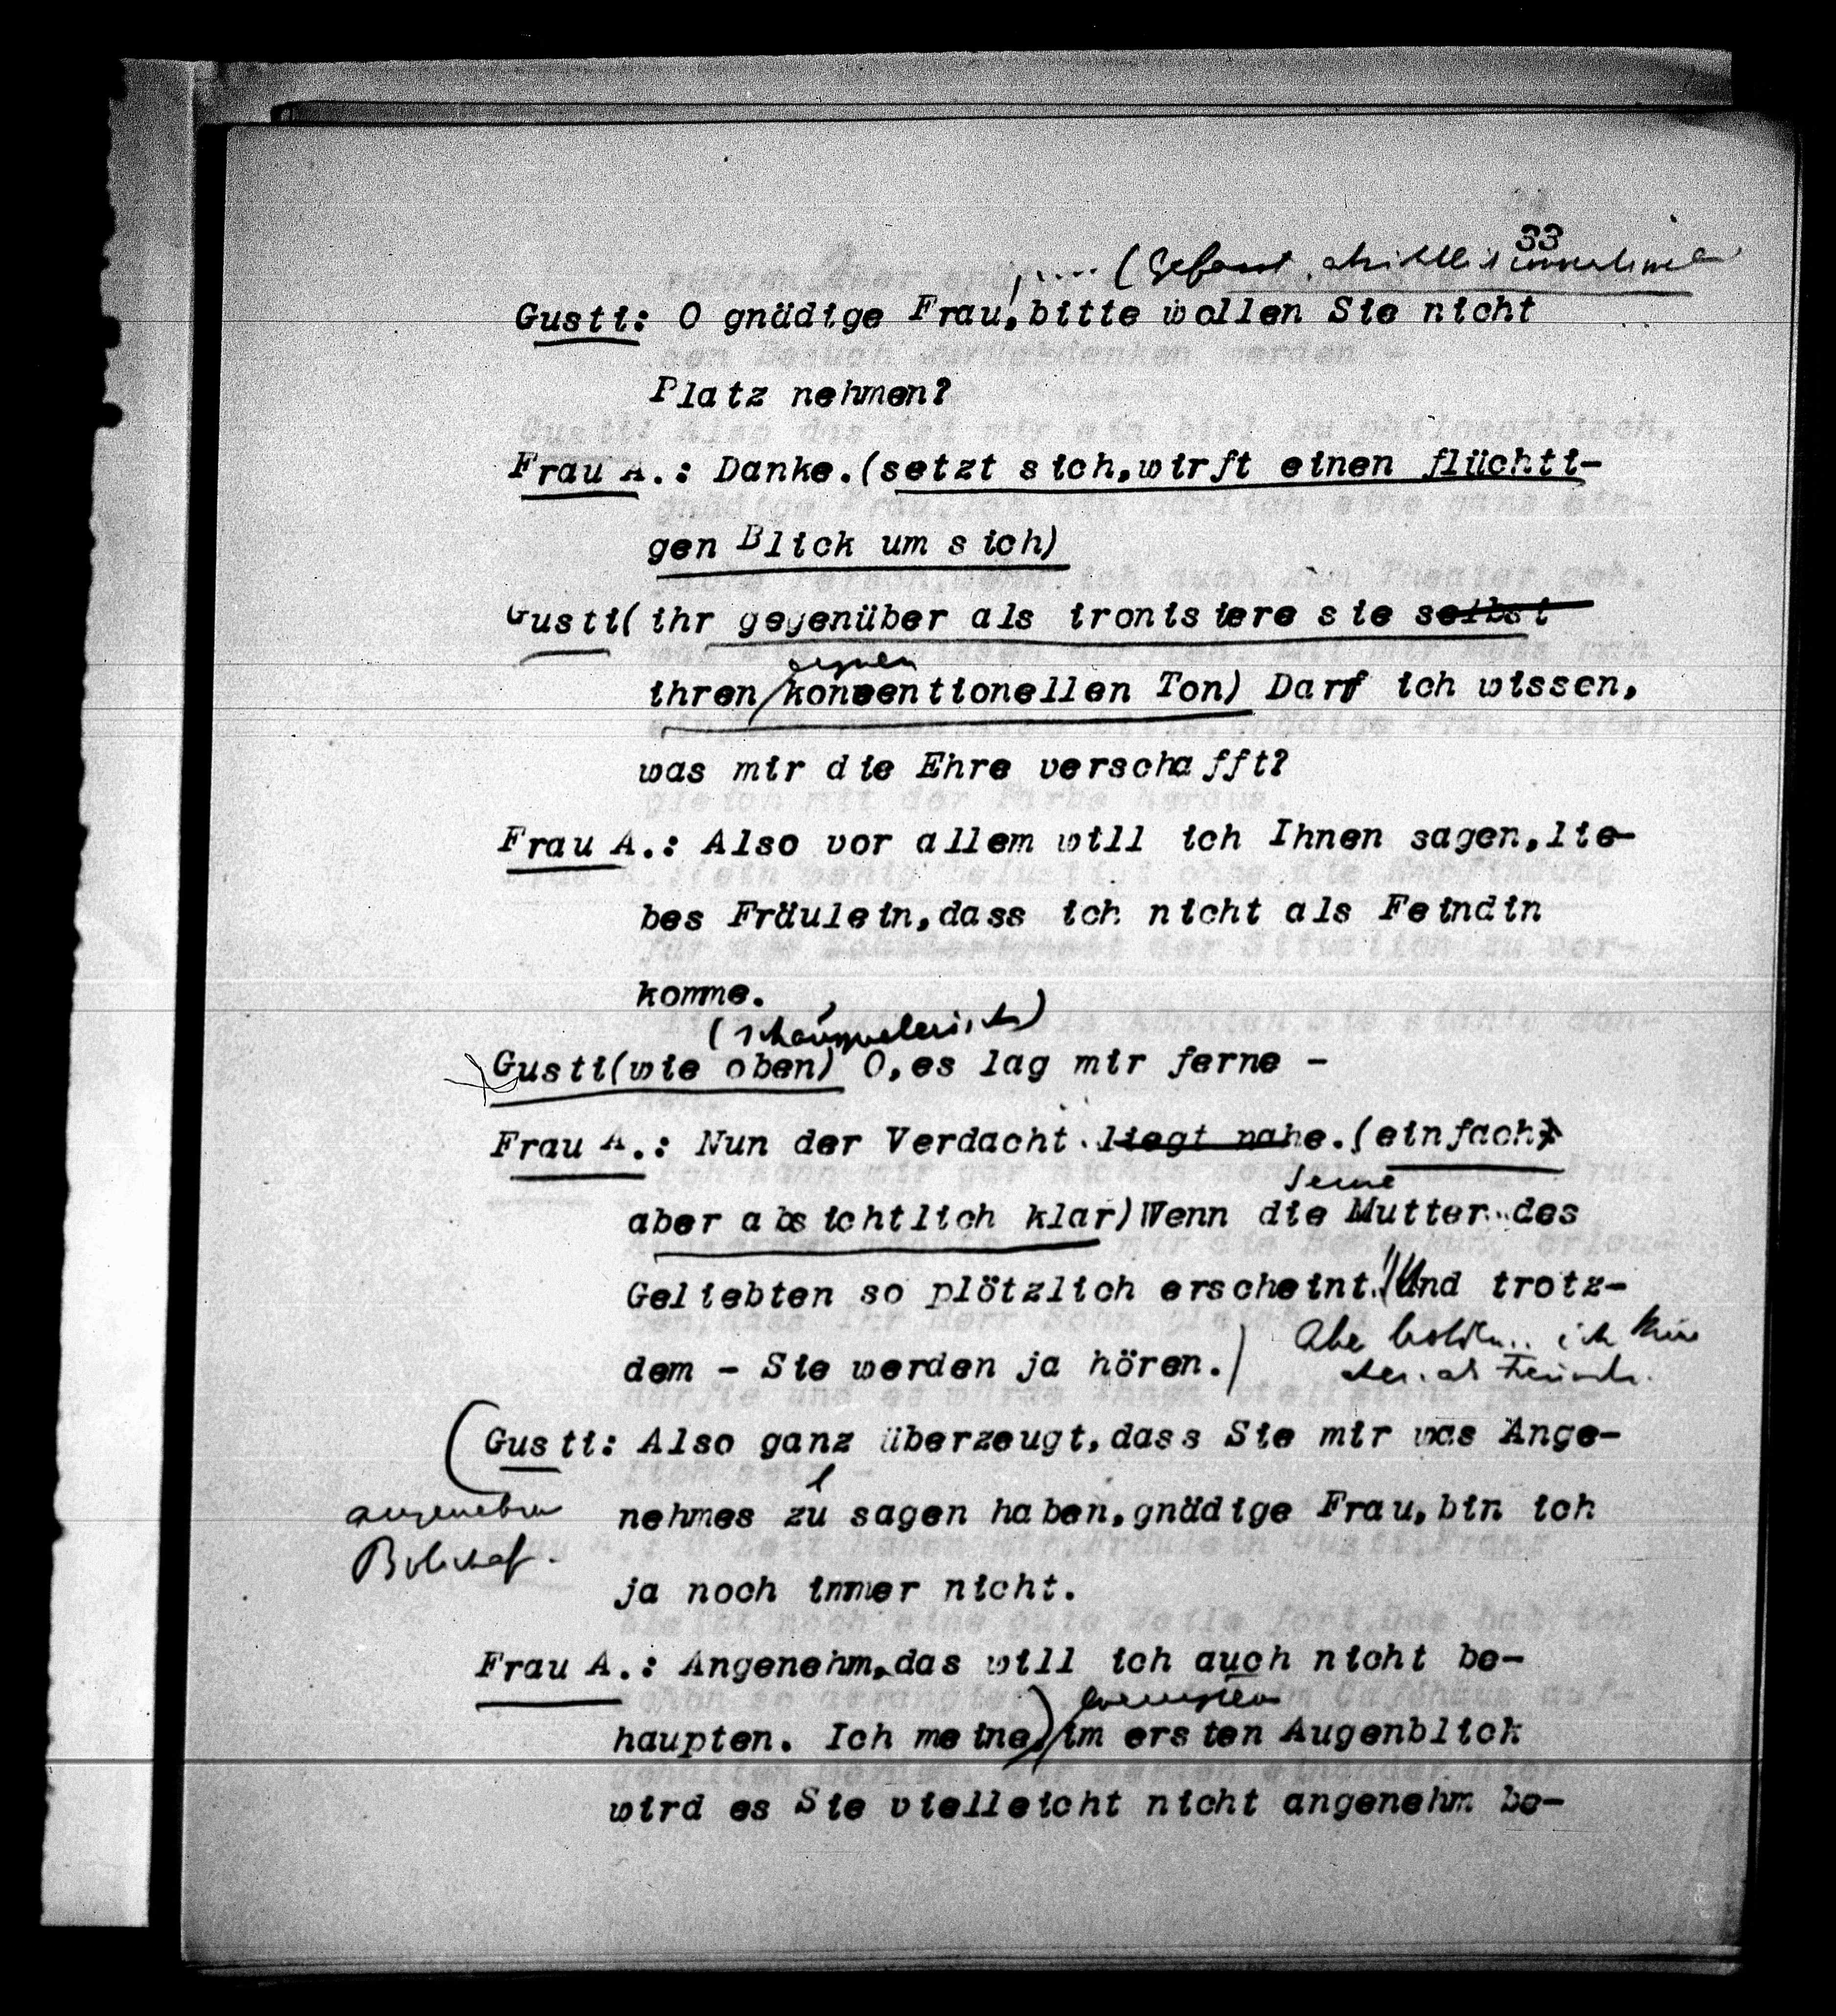 33
(Gefasst,
Gusti: O gnädige Frau, bitte wollen Sie nicht
Platz nehmen?
Frau A.: Danke.(setzt sich,wirft einen flüchti-
gen Blick um sich)
Gusti( ihr gegenüber als ironisiere sie selbst
eignen
ihren konventionellen Ton) Darf ich wissen,
was mir die Ehre verschafft?
Frau A.: Also vor allem will ich Ihnen sagen,lie-
bes Fräulein,dass ich nicht als Feindin
komme.
(schauspielerisch)
Gusti(wie oben) O,es lag mir ferne -
Frau A.: Nun der Verdacht liegt nahe.(einfach,
seine
aber absichtlich klar)Wenn die Mutter des
Geliebten so plötzlich erscheint. Und trotz-
dem - Sie werden ja hören.)
Aber ich
Gusti: Also ganz überzeugt,dass Sie mir was Ange-
nehmes zu sagen haben,gnädige Frau,bin ich
angenehm
Botschaft.
ja noch immer nicht.
Frau A.: Angenehm,das will ich auch nicht be-
wenigstens
haupten. Ich meine,im ersten Augenblick
wird es Sie vielleicht nicht angenehm be-